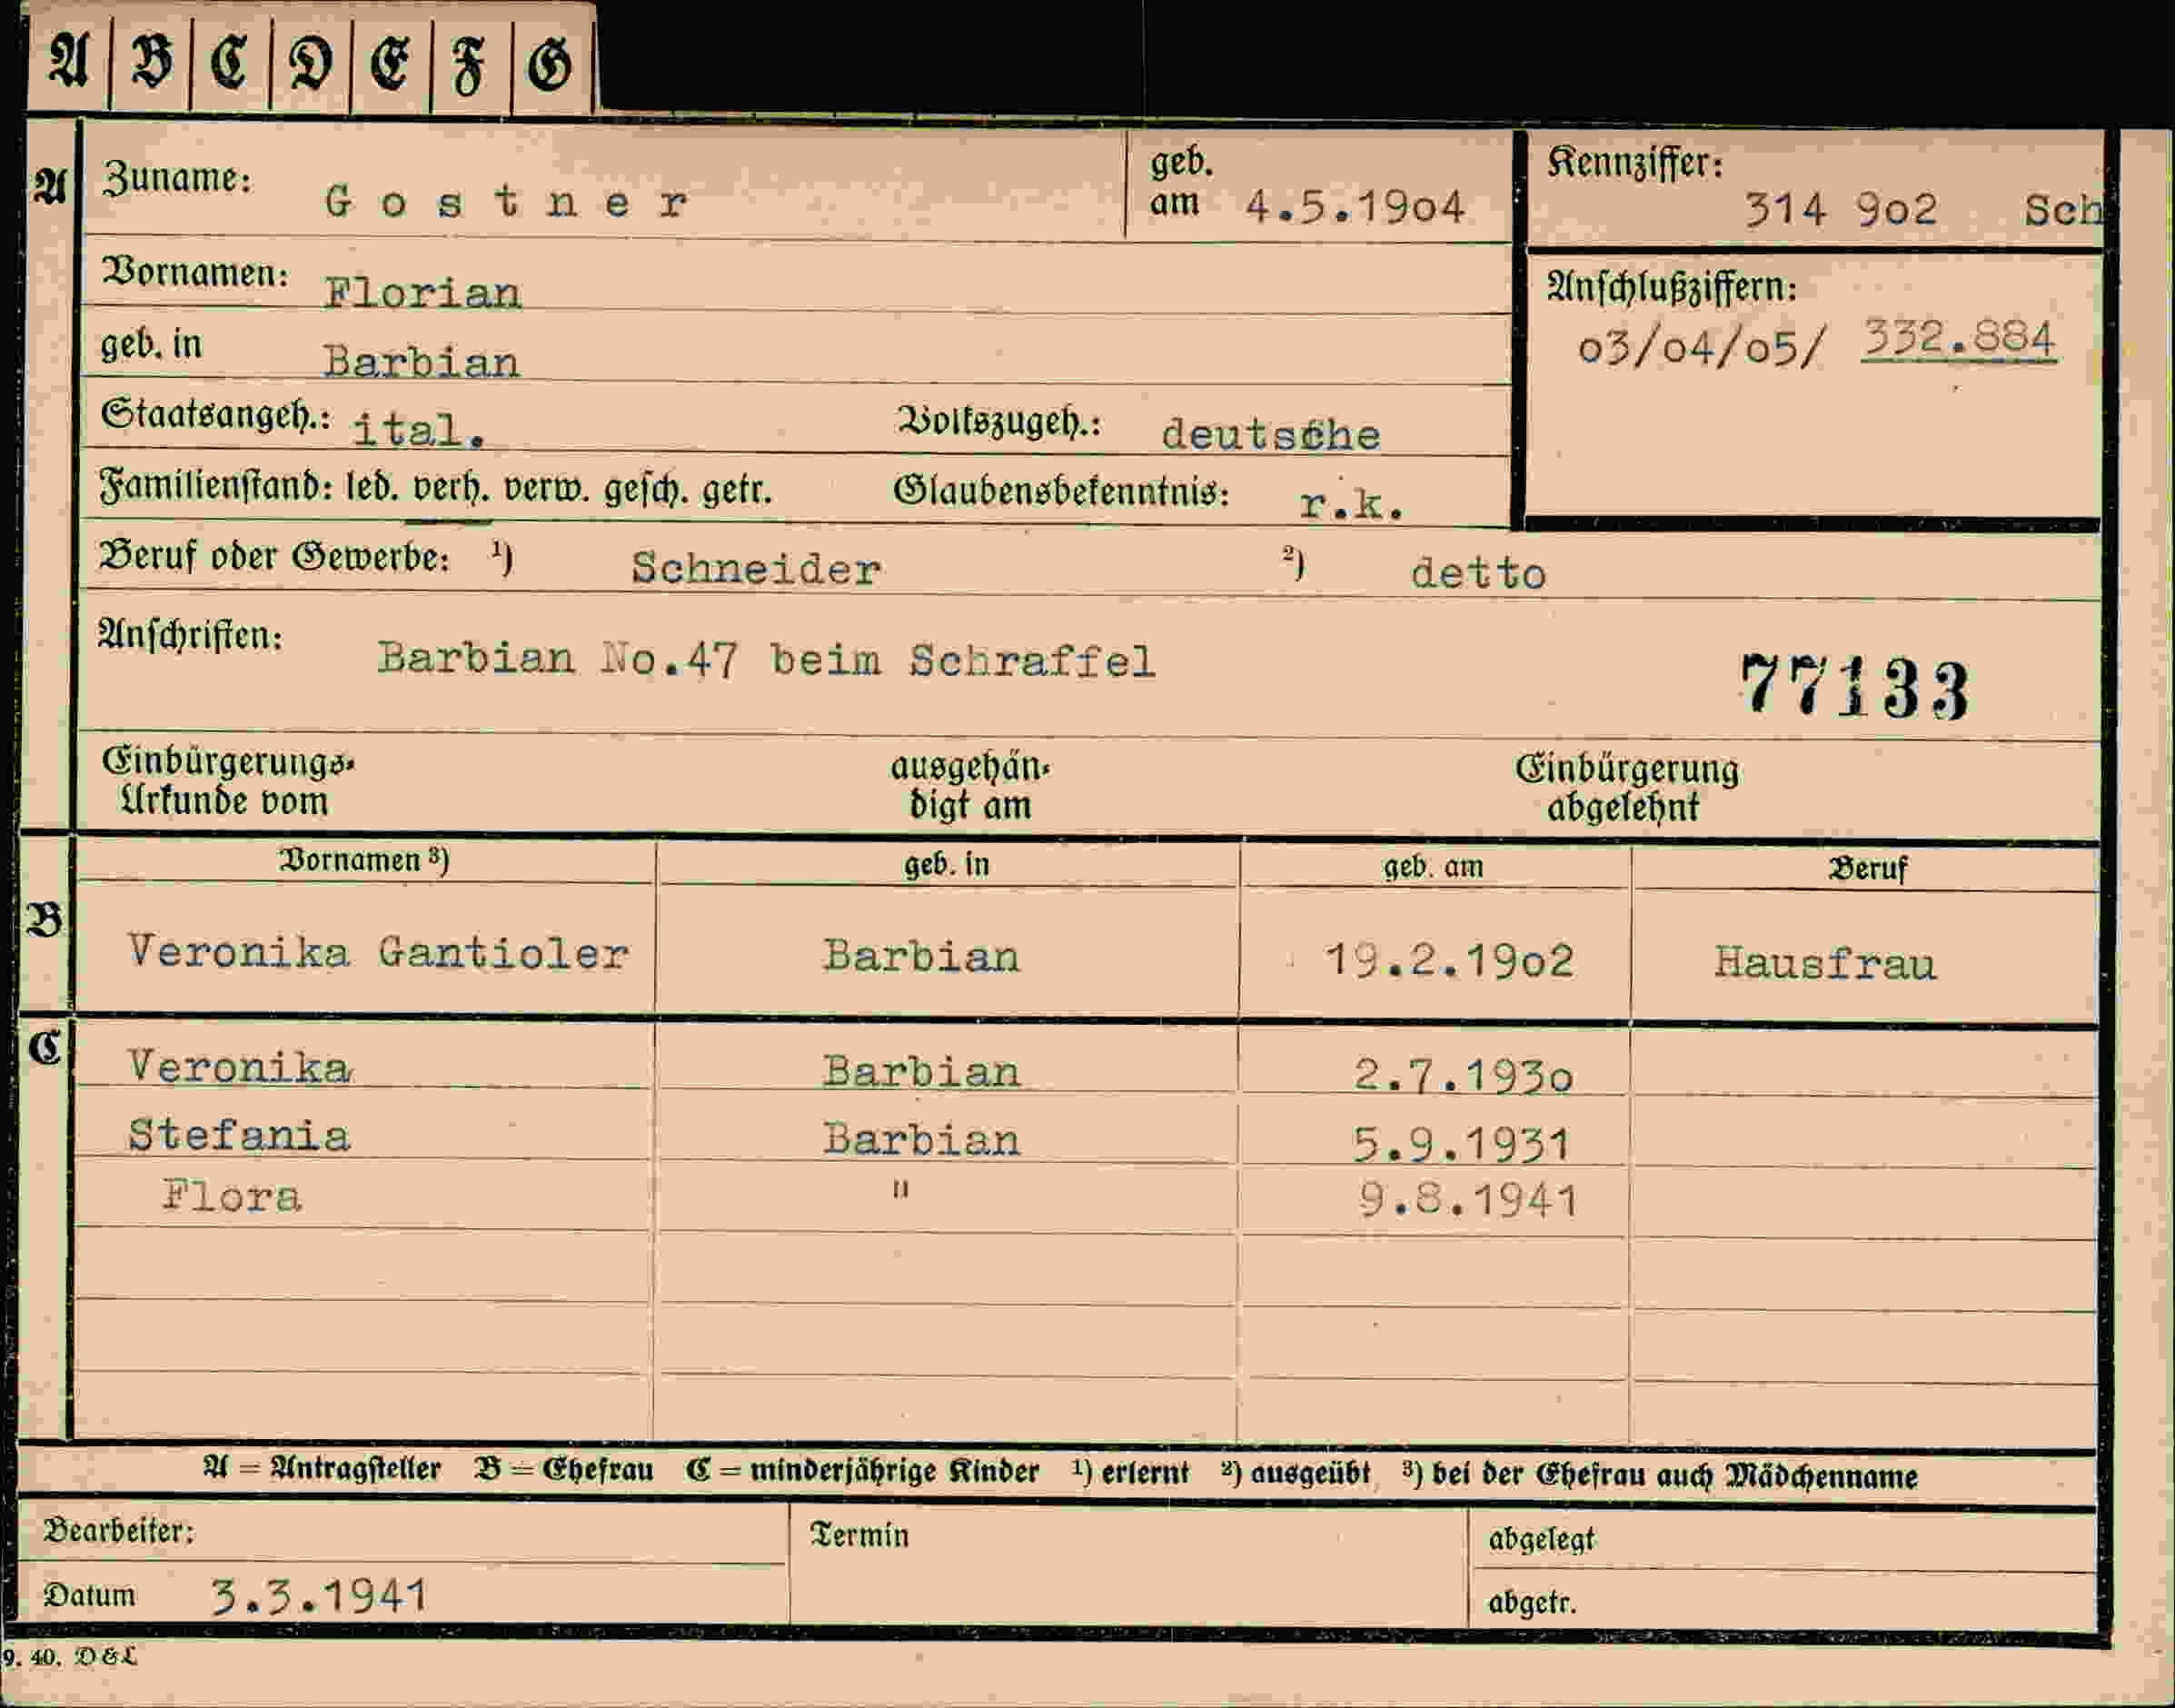 A B C D E F G
A Zuname: Gostner geb. am 4.5.1904 Kennziffer: 314 902 Sch
Vornamen: Florian
Anschlußziffern:
geb. in Barbian 03/04/05/ 332.884
Staatsangeh.: ital. Volkszugeh.: deutsche
Familienstand: led. verh. verw. gesch. getr. Glaubensbekenntnis: r.k.
Beruf oder Gewerbe: ¹) Schneider ²) detto
Anschriften: Barbian No.47 beim Schraffel 77133
Einbürgerungs- ausgehän- Einbürgerung
Urkunde vom digt am abgelehnt
Vornamen ³) geb. in geb. am Beruf
B Veronika Gantioler Barbian 19.2.1902 Hausfrau
C Veronika Barbian 2.7.1930
Stefania Barbian 5.9.1931
Flora " 9.8.1941
A = Antragsteller B = Ehefrau C = minderjährige Kinder ¹) erlernt ²) ausgeübt ³) bei der Ehefrau auch Mädchenname
Bearbeiter: Termin abgelegt
Datum 3.3.1941 abgetr.
9. 40. D & L